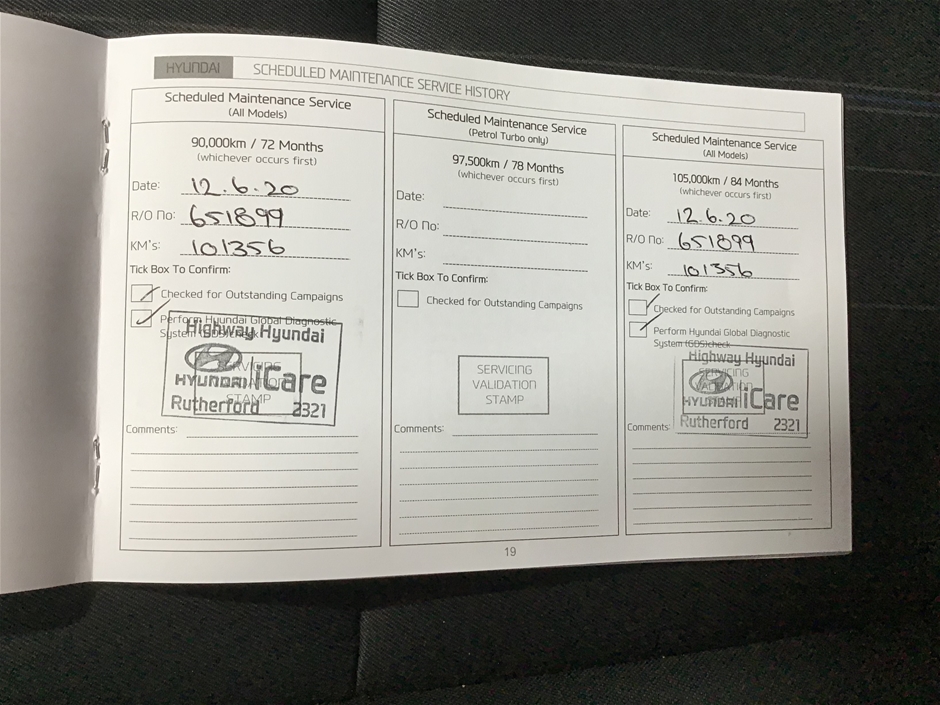 HYUNDAI
SCHEDULED MAINTENANCE SERVICE HISTORY
Scheduled Maintenance Service
(All Models)
90,000km / 72 Months
(whichever occurs first)
Date: 12.6.20
R/O No: 651899
KM's: 101356
Tick Box To Confirm:
Checked for Outstanding Campaigns
Perform Hyundai Global Diagnostic
System (GDS)check
Highway Hyundai
SERVICING
VALIDATION
STAMP
HYUNDAI iCare
Rutherford 2321
Comments:
Scheduled Maintenance Service
(Petrol Turbo only)
97,500km / 78 Months
(whichever occurs first)
Date:
R/O No:
KM's:
Tick Box To Confirm:
Checked for Outstanding Campaigns
SERVICING
VALIDATION
STAMP
Comments:
Scheduled Maintenance Service
(All Models)
105,000km / 84 Months
(whichever occurs first)
Date: 12.6.20
R/O No: 651899
KM's: 101356
Tick Box To Confirm:
Checked for Outstanding Campaigns
Perform Hyundai Global Diagnostic
System (GDS)check
Highway Hyundai
SERVICING
VALIDATION
STAMP
HYUNDAI iCare
Rutherford 2321
Comments:
19